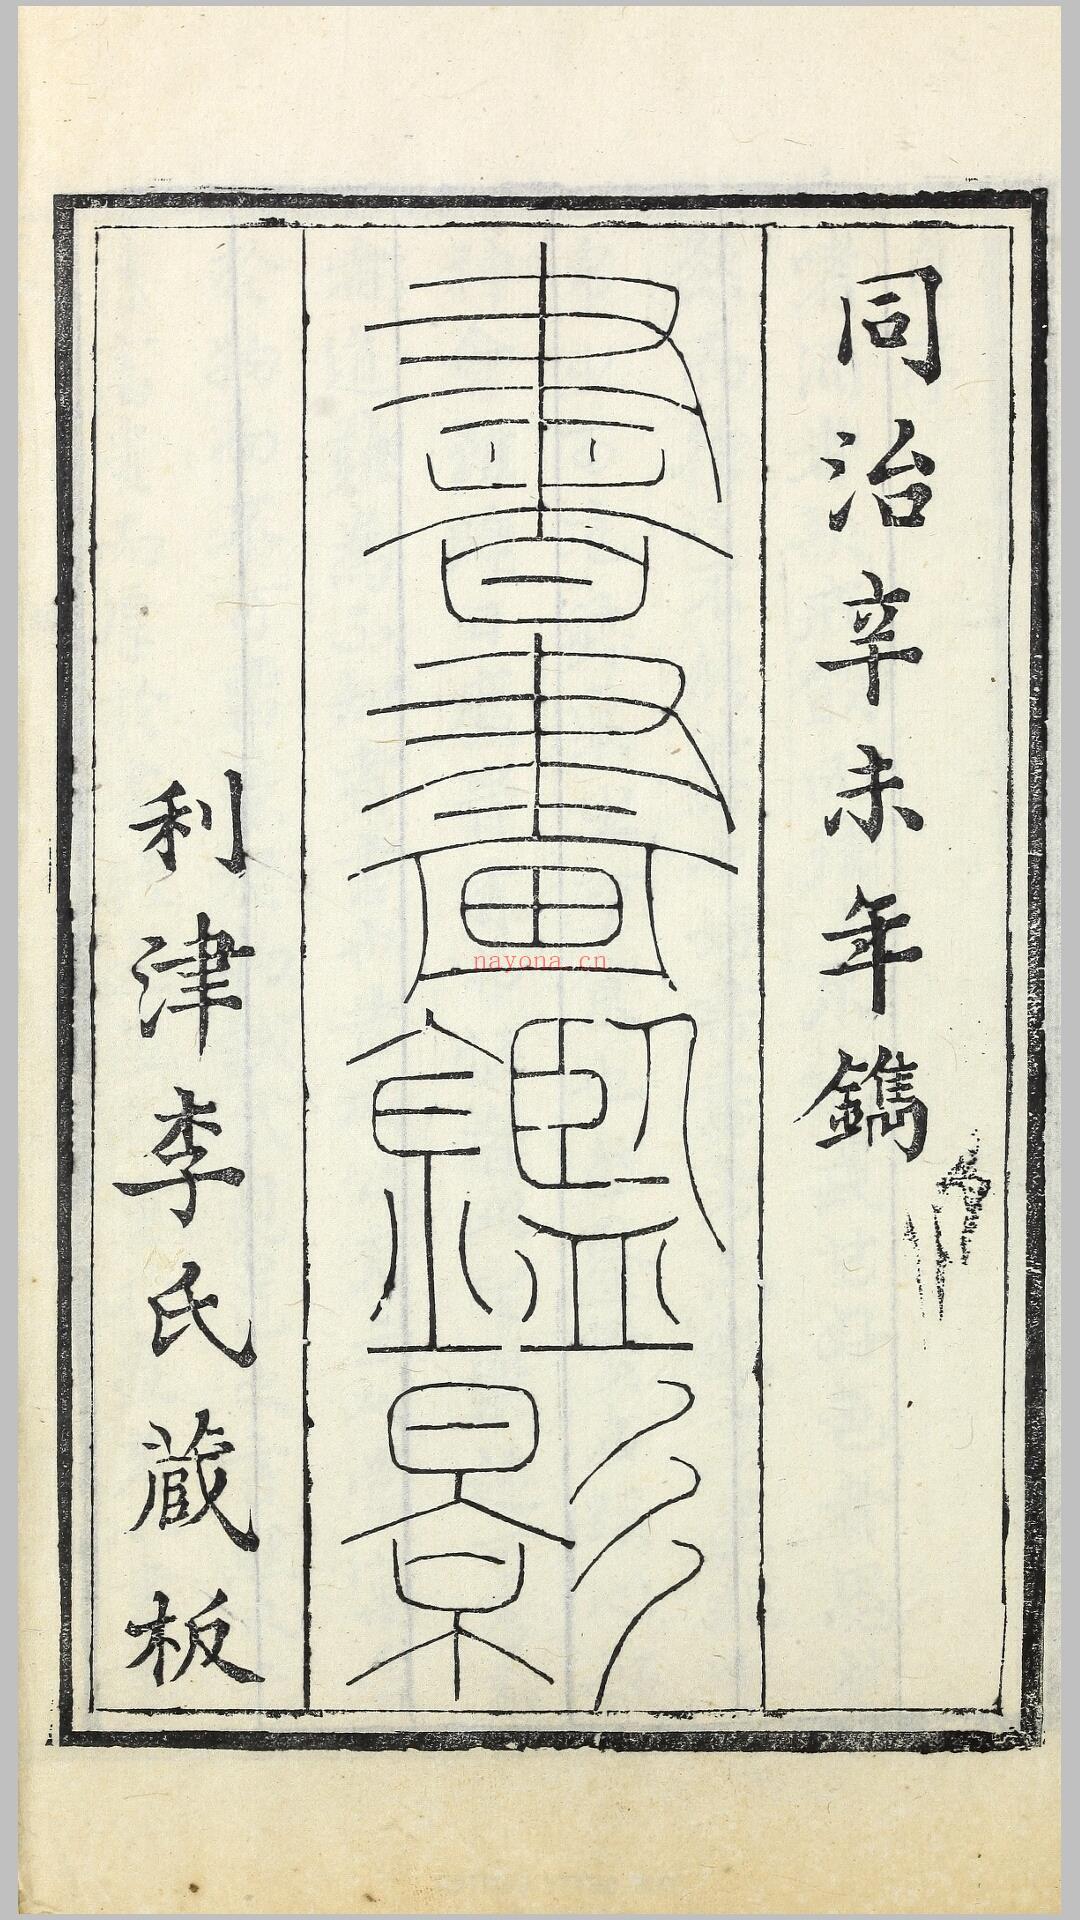 同治辛未年鐫
書畫鑑影
利津李氏蔵板
nayona.cn